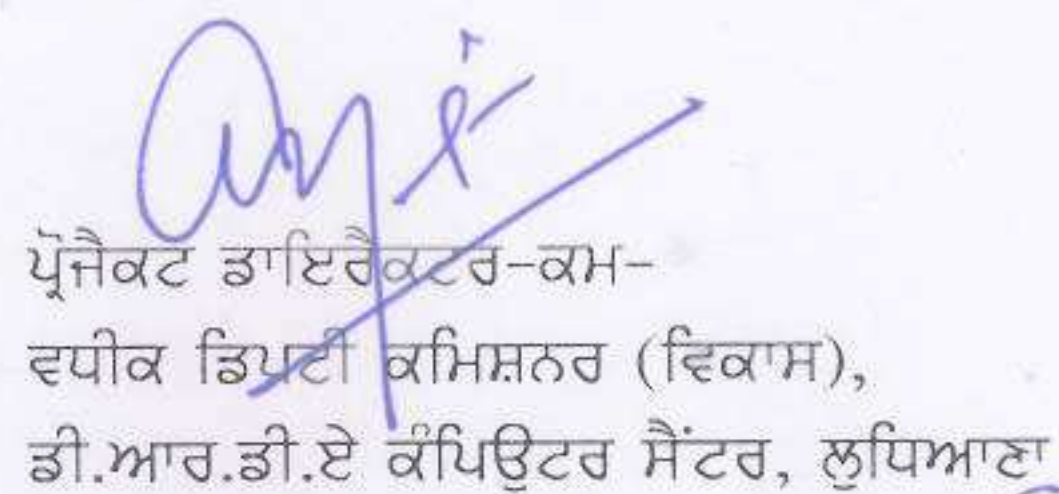 ਪ੍ਰੋਜੈਕਟ ਡਾਇਰੈਕਟਰ-ਕਮ-
ਵਧੀਕ ਡਿਪਟੀ ਕਮਿਸ਼ਨਰ (ਵਿਕਾਸ),
ਡੀ.ਆਰ.ਡੀ.ਏ ਕੰਪਿਊਟਰ ਸੈਂਟਰ, ਲੁਧਿਆਣਾ